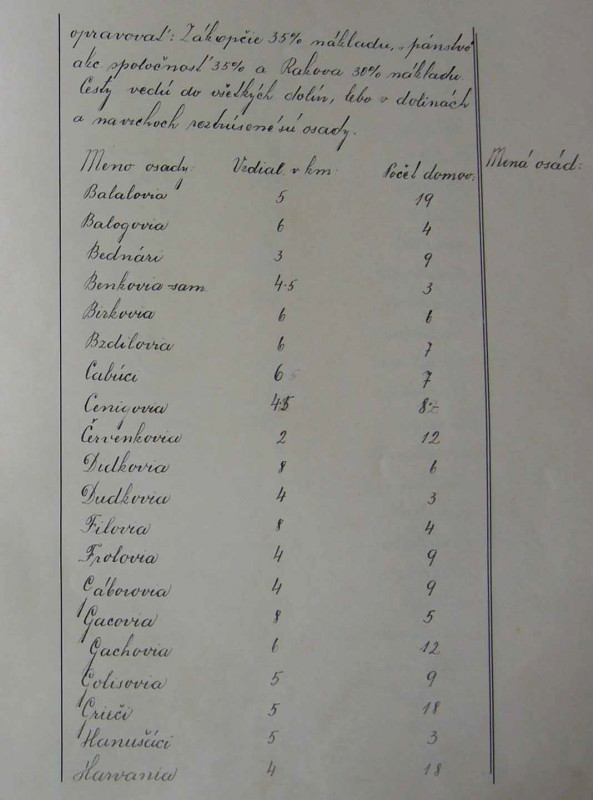 opravovať: Zákopčie 35% nákladu, pánstvo
ako spoločnosť 35% a Rakova 30% nákladu.
Cesty vedú do všetkých dolín, lebo v dolinách
a na vrchoch rozbúsené sú osady.
Mená osád:
Meno osady: Vzdial. v km: Počet domov:
Balalovia 5 19
Balogovia 6 4
Bednári 3 9
Benkovia sam. 4·5 3
Birkovia 6 6
Bzdilovia 6 7
Cabúci 6 7
Cenigovia 4·5 8
Červenkovia 2 12
Didkovia 8 6
Dudkovia 4 3
Filovia 8 4
Frolovia 4 9
Gáborovia 4 9
Gacovia 8 5
Gachovia 6 12
Golisovia 5 9
Grieči 5 18
Hanuščáci 5 3
Harvania 4 18